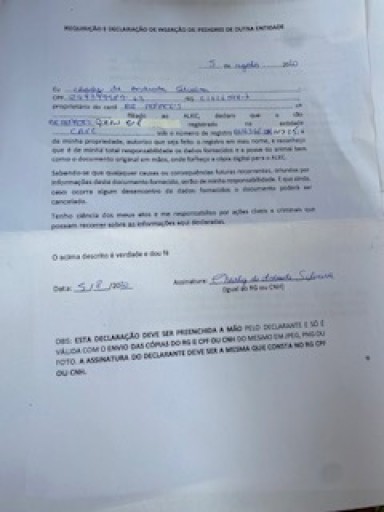 REQUISIÇÃO E DECLARAÇÃO DE INSERÇÃO DE PEDIGREE DE OUTRA ENTIDADE
5 de agosto 2020
Eu Charley de Andrade
CPF RG
proprietário do canil o
filiado ao ALKC, declaro que o cão
registrado na entidade
sob o número de registro
da minha propriedade, autorizo que seja feito o registro em meu nome, e reconheço
que é de minha total responsabilidade os dados fornecidos e a posse do animal bem
como o documento original em mãos, onde forneço a cópia digital para o ALKC.
Sabendo-se que quaisquer causas ou consequências futuras recorrentes, oriundos por
informações deste documento fornecido, serão de minha responsabilidade. E que ainda,
caso ocorra algum desencontro de dados fornecidos o documento poderá ser
cancelado.
Tenho ciência dos meus atos e me responsabilizo por ações cíveis e criminais que
possam recorrer sobre as informações aqui declaradas.
O acima descrito é verdade e dou fé
Data: 5/8/2020 Assinatura: Charley de Andrade
(Igual do RG ou CNH)
OBS: ESTA DECLARAÇÃO DEVE SER PREENCHIDA A MÃO PELO DECLARANTE E SÓ É
VÁLIDA COM O ENVIO DAS CÓPIAS DO RG E CPF OU CNH DO MESMO EM JPEG, PNG OU
FOTO. A ASSINATURA DO DECLARANTE DEVE SER A MESMA QUE CONSTA NO RG CPF
OU CNH.